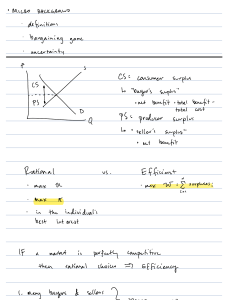 • MICRO BACKGROUND
· definitions
· bargaining game
· uncertainty
P
S
CS
PS
D
Q
CS: consumer surplus
↳ "buyer's surplus"
• net benefit = total benefit - total cost
PS: producer surplus
↳ "seller's surplus"
• net benefit
Rational vs. Efficient
· max
· max π
· in the individual's
best interest
· max
IF a market is perfectly competitive
then rational choice ⟹ Efficiency
1. many buyers & sellers